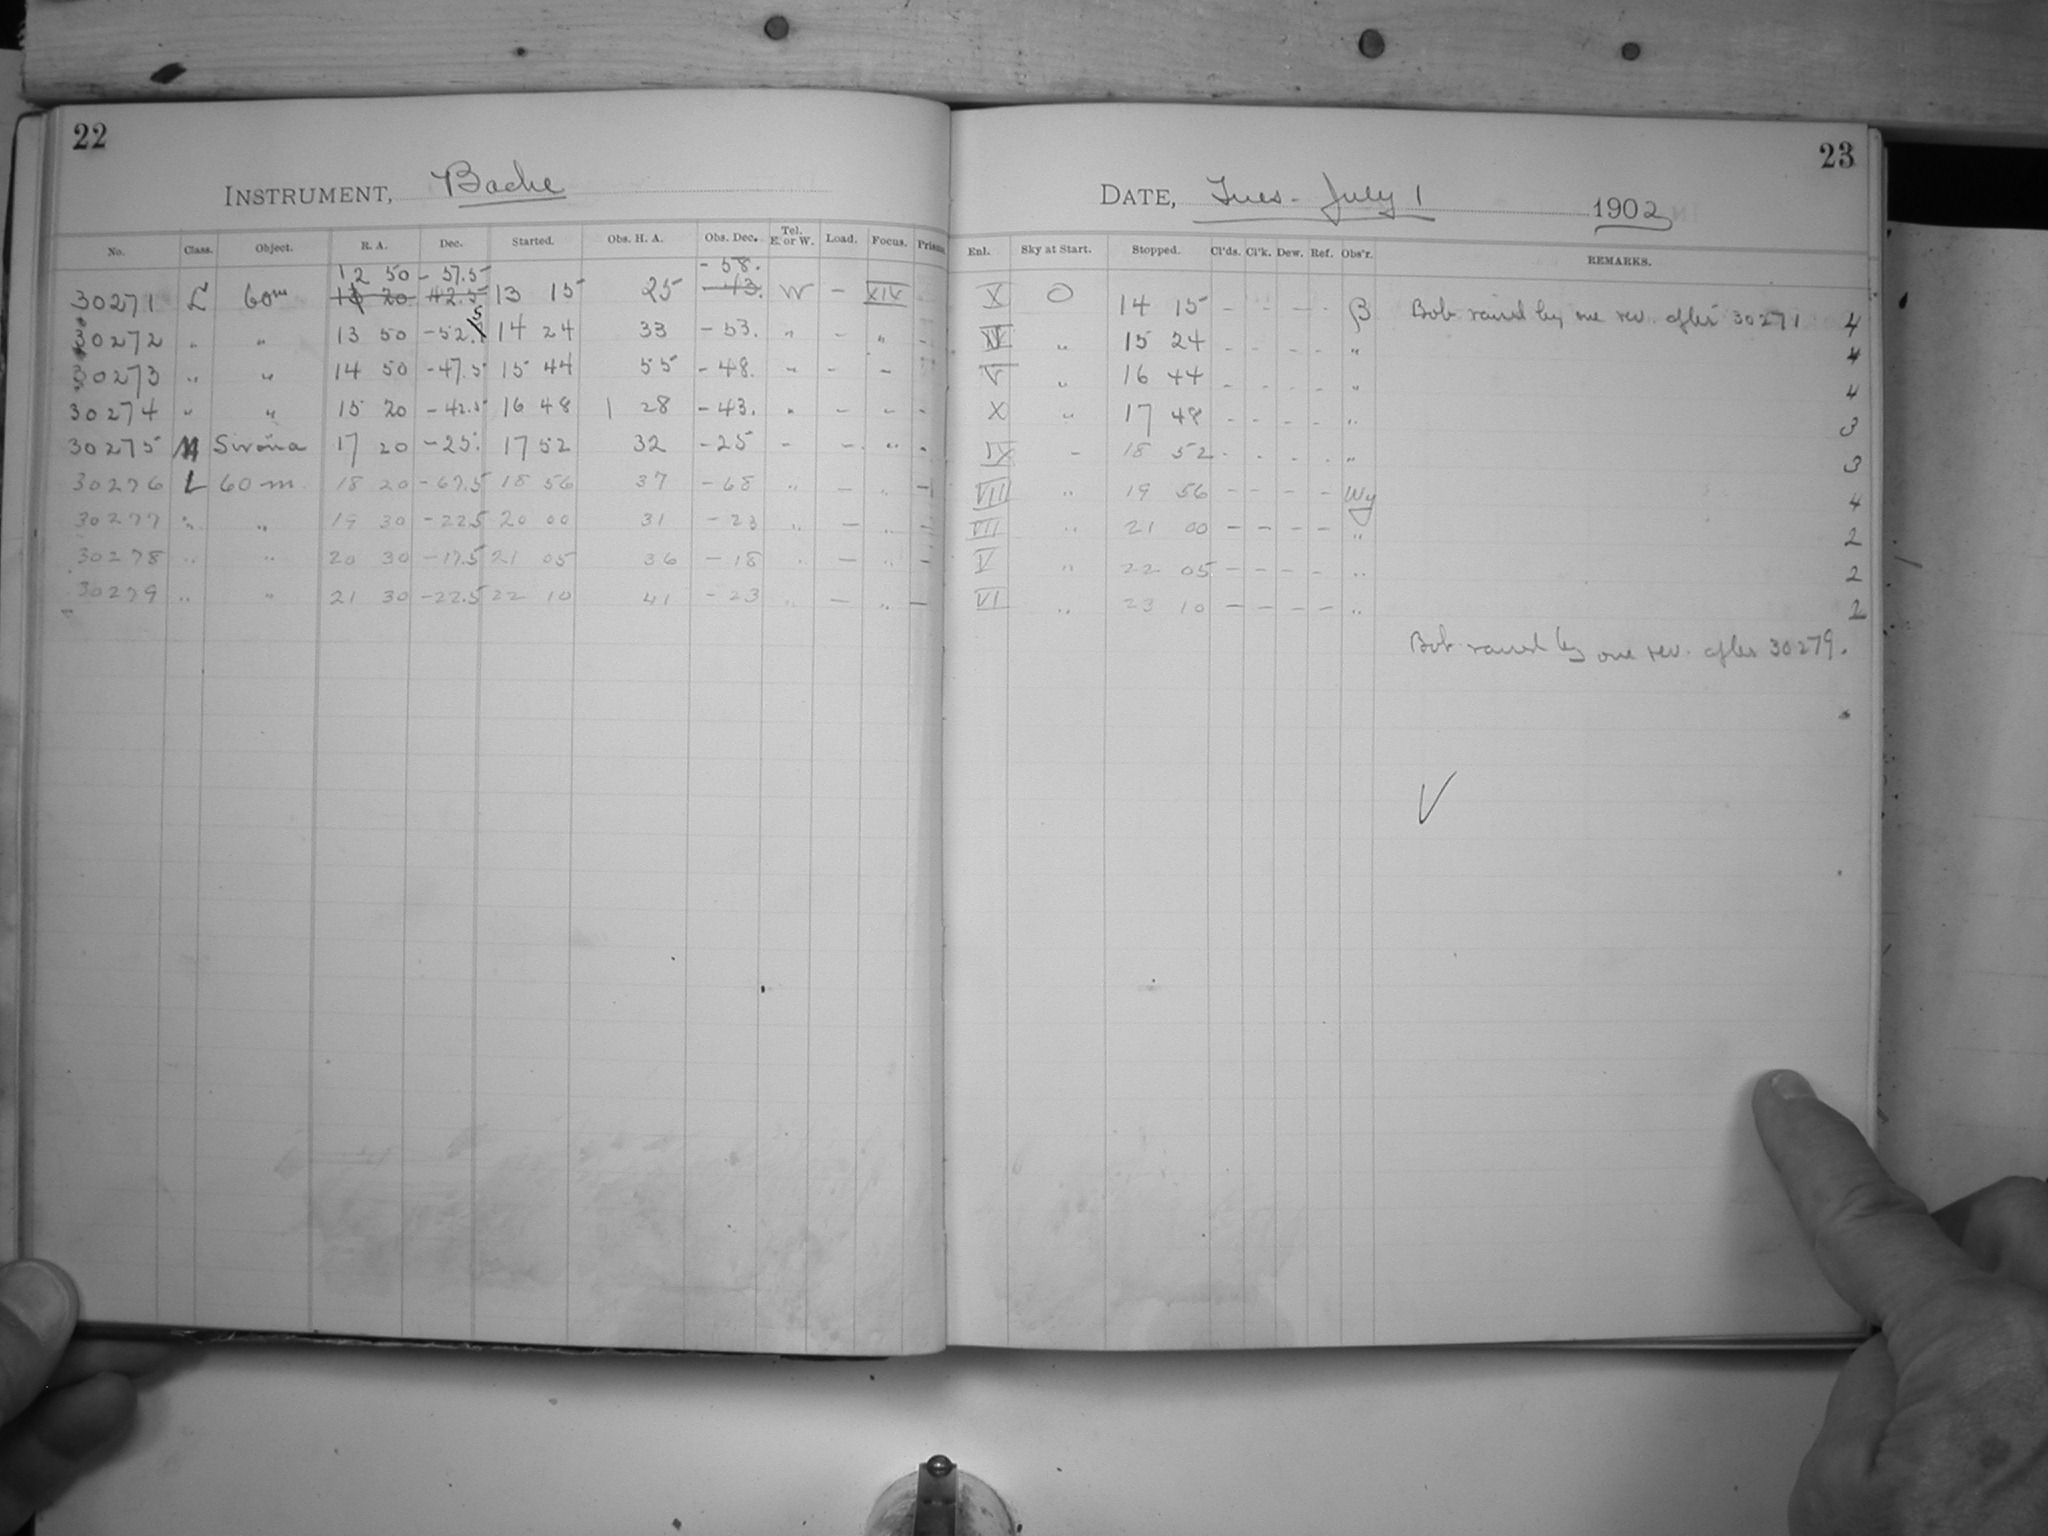 22
INSTRUMENT, Bache
No. Class. Object. R. A. Dec. Started. Obs. H. A. Obs. Dec. Tel. E. or W. Load. Focus. Prism
12 50 - 57.5 - 58.
30271 L 60m 20 42.5 13 15 25 - 43. W - XIV
30272 " " 13 50 -52.5 14 24 33 - 53. " - " -
30273 " " 14 50 -47.5 15 44 55 - 48. " - -
30274 " " 15 20 -42.5 16 48 1 28 - 43. " - - -
30275 M Sirona 17 20 -25. 17 52 32 -25 - - " "
30276 L 60 m 18 20 -67.5 18 56 37 -68 " - " -
30277 " " 19 30 -22.5 20 00 31 -23 " - " -
30278 " " 20 30 -17.5 21 05 36 -18 " - " -
30279 " " 21 30 -22.5 22 10 41 -23 " - " -
23
DATE, Tues. July 1 1902
Enl. Sky at Start. Stopped. Cl'ds. Cl'k. Dew. Ref. Obs'r. REMARKS.
X 0 14 15 - - - - β Bob raised by one rev. after 30271 4
" 15 24 - - - - " 4
V " 16 44 - - - - " 4
X " 17 48 - - - - " 3
IX - 18 52 - - - - " 3
VII " 19 56 - - - - Wy 4
VII " 21 00 - - - - " 2
V " 22 05 - - - - " 2
VI " 23 10 - - - - " 2
Bob raised by one rev. after 30279.